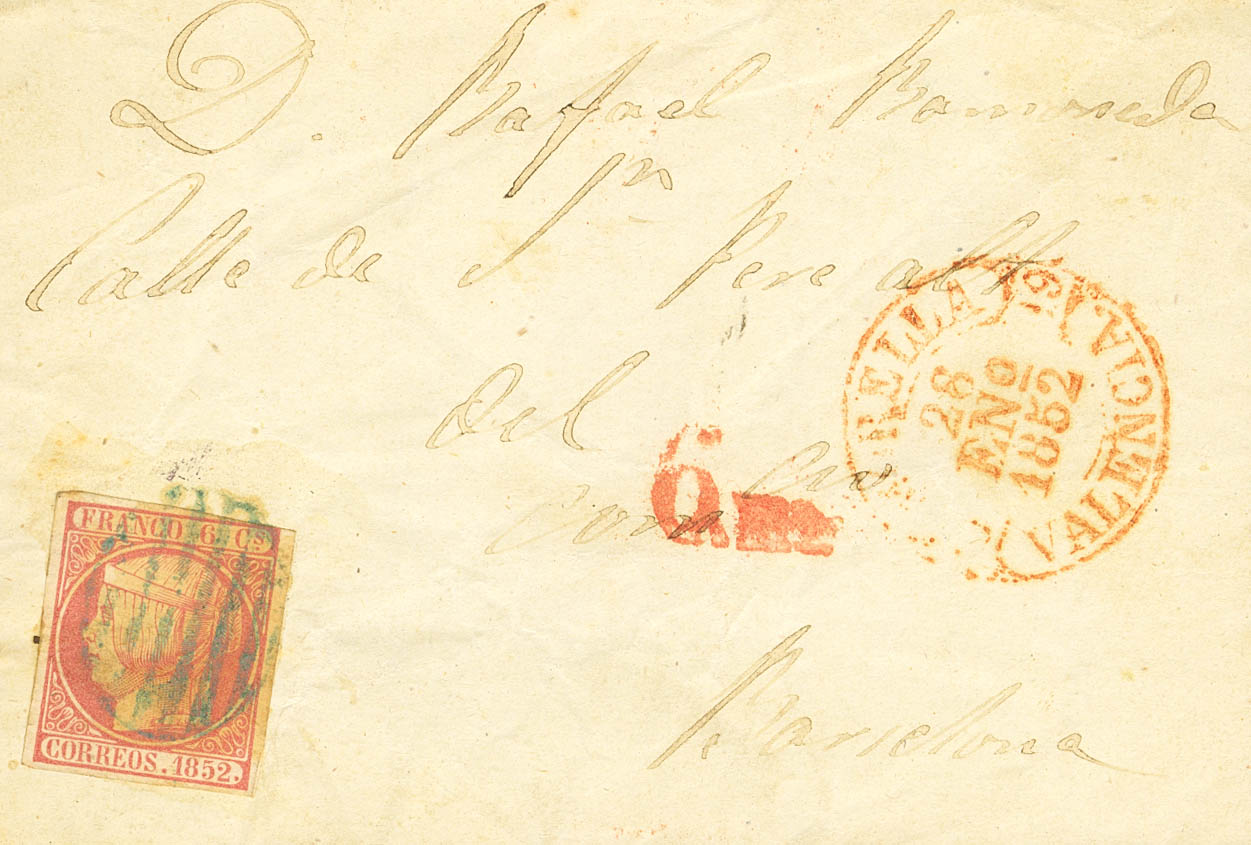 D. Rafael Ramoneda
Calle de Sn Pere alt
del
Barcelona
6
RELLA
(VALENCIA.)
28
ENO
1852
FRANCO 6 Cs
CORREOS. 1852.